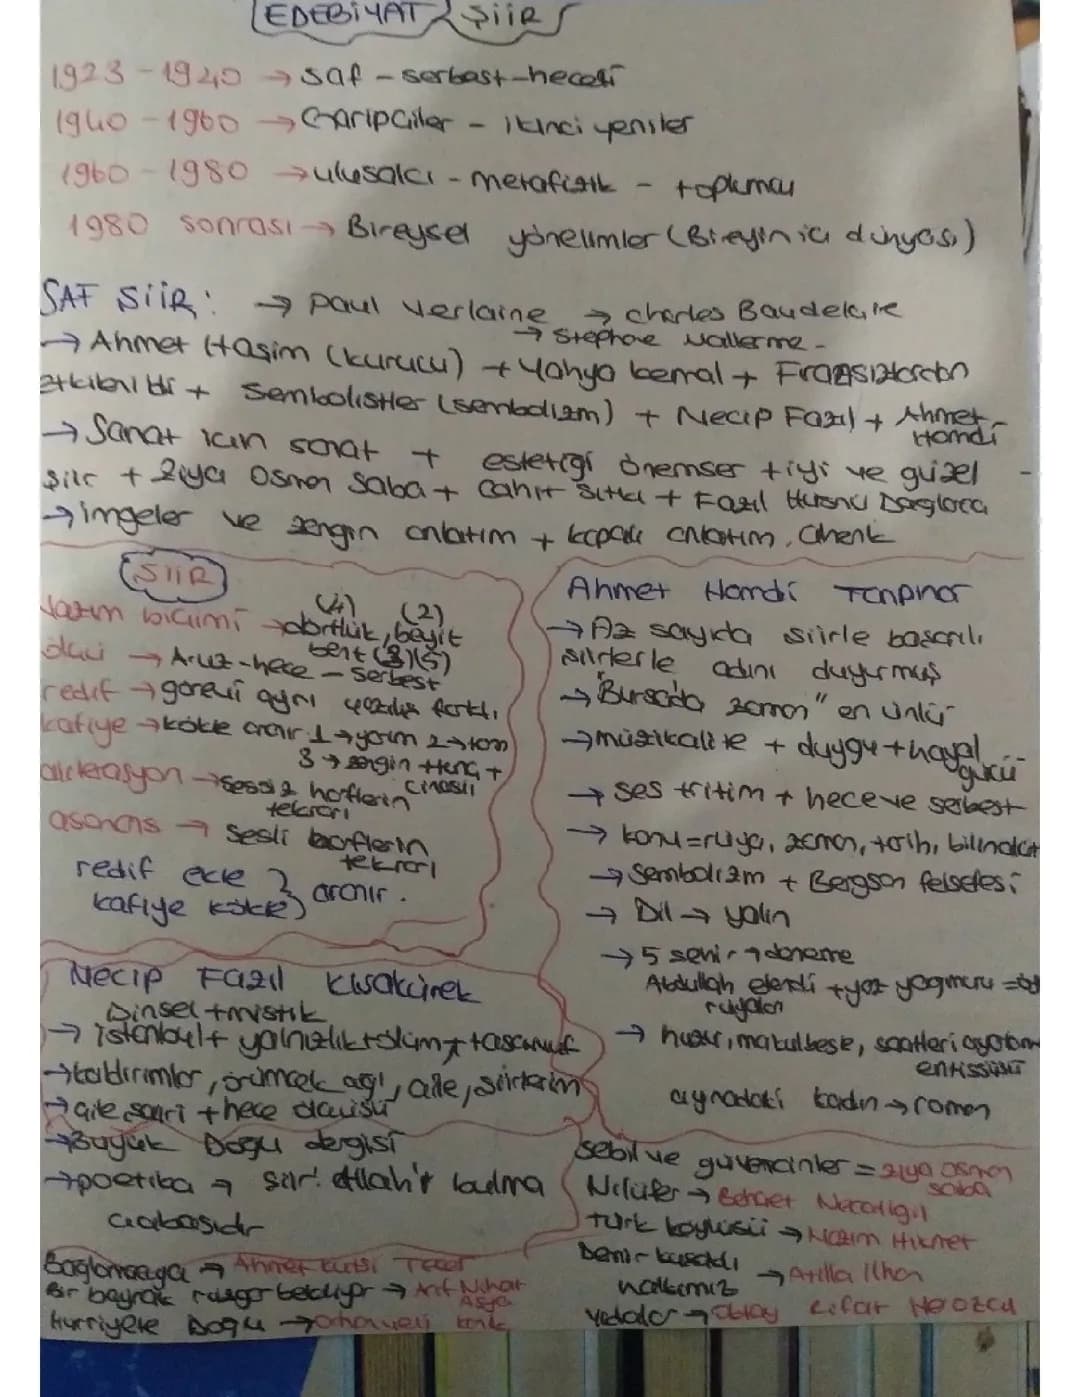 EDEBİYAT ŞİİR
1923-1940 → saf - serbest - heceli
1940-1960 → Garipçiler - ikinci yeniler
1960-1980 → ulusalcı - metafizik - toplumcu
1980 sonrası → Bireysel yönelimler (Bireyin iç dünyası)
SAF ŞİİR: → Paul Verlaine → Charles Baudelaire
→ Stephane Mallerme -
→ Ahmet Haşim (kurucu) + Yahya kemal + Fransızlardan
etkilenildi + Sembolistler (sembolizm) + Necip Fazıl + Ahmet Hamdi
→ Sanat için sanat + estetiği önemser + iyi ve güzel
şiir + Ziya Osman Saba + Cahit Sıtkı + Fazıl Hüsnü Dağlarca
→ imgeler ve zengin anlatım + kapalı anlatım. Ahenk
ŞİİR
Nazım biçimi → dörtlük (4), beyit (2)
bent (3)(5)
ölçü → Aruz - hece - serbest
redif → görevi aynı yazılışı farklı
kafiye → kökte aranır 1→yarım 2→tam
3→zengin + tunç +
cinaslı
aliterasyon → sessiz harflerin
tekrarı
asonans → sesli harflerin
tekrarı
redif ekte } aranır.
kafiye kökte
Necip Fazıl Kısakürek
Dinsel + mistik
→ istanbul + yalnızlık + ölüm + tasavvuf
→ kaldırımlar, örümcek ağı, çile, şiirlerim
→ çile şairi + hece ölçüsü
→ Büyük Doğu dergisi
→ poetika → şiir: Allah'ı bulma
çabasıdır
Bağlamaya → Ahmet Kutsi Tecer
Bir bayrak rüzgar bekliyor → Arif Nihat
Asya
Hürriyete Doğru → Orhan veli kanık
Ahmet Hamdi Tanpınar
→ Az sayıda şiirle başarılı
şiirlerle adını duyurmuş
→ "Bursada zaman" en ünlü
→ müzikalite + duygu + hayal
gücü
→ ses + ritim + hece ve serbest
→ konu = rüya, zaman, tarih, bilinçaltı
→ Sembolizm + Bergson felsefesi
→ Dil → yalın
→ 5 şehir → deneme
Abdullah efendi + yaz yağmuru =
rüyaları
→ huzur, mahur beste, saatleri ayarlama
enstitüsü
aynadaki kadın → roman
Sebil ve güvercinler = Ziya Osman
Saba
Nilüfer → Behçet Necatigil
türk köylüsü → Nazım Hikmet
Demir kuşaklı
→ Atilla İlhan
vedalar → Oktay Rifat Horozcu